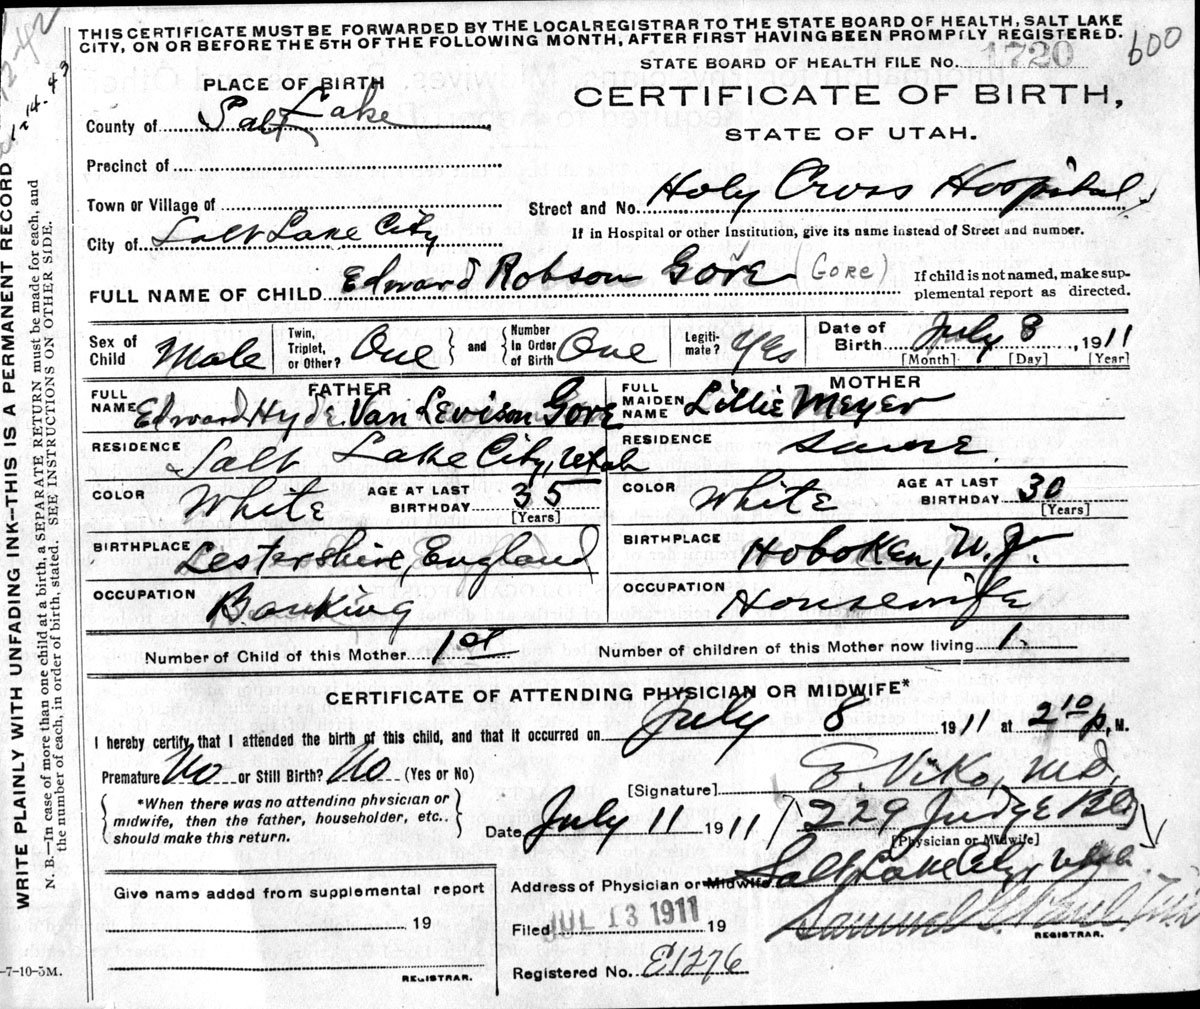 THIS CERTIFICATE MUST BE FORWARDED BY THE LOCAL REGISTRAR TO THE STATE BOARD OF HEALTH, SALT LAKE
CITY, ON OR BEFORE THE 5TH OF THE FOLLOWING MONTH, AFTER FIRST HAVING BEEN PROMPTLY REGISTERED.
600
STATE BOARD OF HEALTH FILE No. 1720
PLACE OF BIRTH
CERTIFICATE OF BIRTH,
STATE OF UTAH.
County of Salt Lake
Precinct of
Town or Village of
Street and No. Holy Cross Hospital
City of Salt Lake City
If in Hospital or other Institution, give its name instead of Street and number.
FULL NAME OF CHILD Edward Robson Gore (Gore)
If child is not named, make sup-
plemental report as directed.
Sex of Child Male
Twin, Triplet, or Other? One } and { Number In Order of Birth One
Legiti-mate? Yes
Date of Birth July 8, 1911
[Month] [Day] [Year]
FATHER
FULL NAME Edward Hyde Van Levison Gore
MOTHER
FULL MAIDEN NAME Lillie Meyer
RESIDENCE Salt Lake City, Utah
RESIDENCE Same.
COLOR White AGE AT LAST BIRTHDAY 35 [Years]
COLOR White AGE AT LAST BIRTHDAY 30 [Years]
BIRTHPLACE Lestershire, England
BIRTHPLACE Hoboken, N.J.
OCCUPATION Banking
OCCUPATION Housewife
Number of Child of this Mother 1st
Number of children of this Mother now living 1
CERTIFICATE OF ATTENDING PHYSICIAN OR MIDWIFE*
I hereby certify that I attended the birth of this child, and that it occurred on July 8 1911 at 2 10 P. M.
Premature No or Still Birth? No (Yes or No)
*When there was no attending physician or
midwife, then the father, householder, etc..
should make this return.
[Signature] E. Viko, M.D.
Date July 11 1911 229 Judge Bld
[Physician or Midwife]
Address of Physician or Midwife Salt Lake City, Utah
Give name added from supplemental report
19
REGISTRAR.
Filed JUL 13 1911 19
Samuel
REGISTRAR.
Registered No. E1276
-7-10-5M.
WRITE PLAINLY WITH UNFADING INK—THIS IS A PERMANENT RECORD
N. B.—In case of more than one child at a birth, a SEPARATE RETURN must be made for each, and
the number of each, in order of birth, stated. SEE INSTRUCTIONS ON OTHER SIDE.